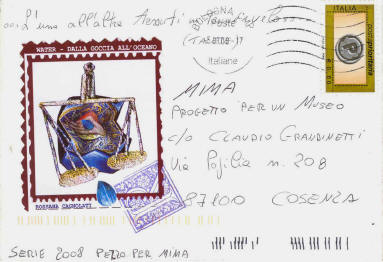 ...L'una all'altra
BOLOGNA
POSTE
Italiane
ITALIA
postaprioritaria
€ 0,60
WATER - DALLA GOCCIA ALL'OCEANO
MIMA
PROGETTO PER UN MUSEO
c/o CLAUDIO GRANDINETTI
Via Popilia n. 208
87100 COSENZA
ROSSANA CAGNOLATI
SERIE 2008 PEZZO PER MIMA